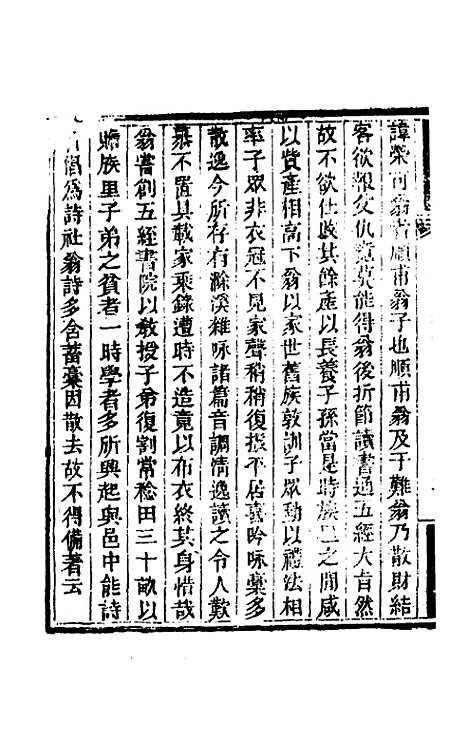 諱榮可翁吉順甫翁子也順甫翁及于難翁乃散財結
客欲報父仇竟莫能得翁後折節讀書通五經大旨然
故不欲仕歧其餘產以長養子孫當是時族里之間咸
以貲產相高下翁以家世舊族敦訓子眾動以禮法相
率子眾非衣冠不見家聲稍稍復振平居喜吟咏藁多
散逸今所存有滁溪雜咏諸篇音調清逸讀之令人歎
慕不置具載家乘錄遭時不造竟以布衣終其身惜哉
翁嘗創五經書院以教授子弟復割常稔田三十畝以
贍族里子弟之貧者一時學者多所興起與邑中能詩
倡為詩社翁詩多含蓄藁因散去故不得備著云